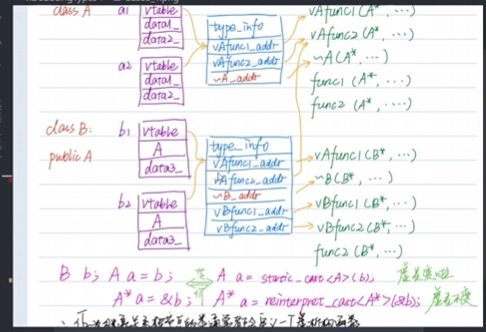 class A
a1
vtable
data1_
data2_
a2
vtable
data1_
data2_
type_info
vAfunc1_addr
vAfunc2_addr
~A_addr
vAfunc1(A*, ...)
vAfunc2(A*, ...)
~A(A*, ...)
func1(A*, ...)
func2(A*, ...)
class B:
public A
b1
vtable
A
data3_
b2
vtable
A
data3_
type_info
vAfunc1_addr
vAfunc2_addr
~B_addr
vBfunc1_addr
vBfunc2_addr
vAfunc1(B*, ...)
~B(B*, ...)
vBfunc1(B*, ...)
vBfunc2(B*, ...)
func2(B*, ...)
B b; A a = b; A a = static_cast<A>(b);
A* a = &b; A* a = reinterpret_cast<A*>(&b);